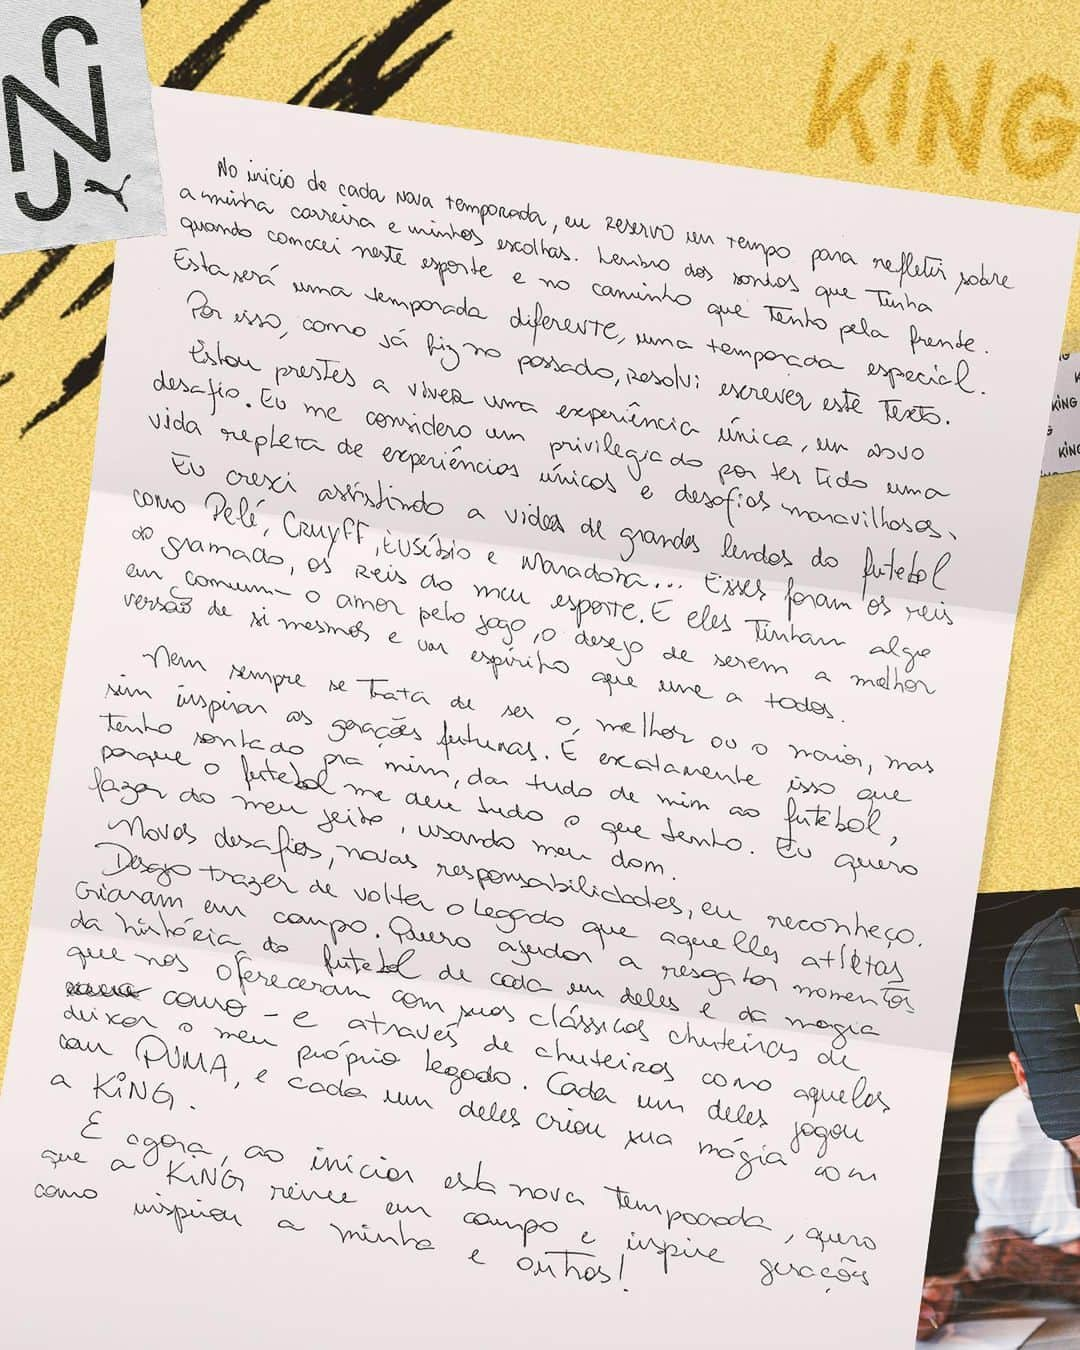 NJ
KiNG
No início de cada nova temporada, eu reservo um tempo para refletir sobre
a minha carreira e minhas escolhas. Lembro dos sonhos que tinha
quando comecei neste esporte e no caminho que tenho pela frente.
Esta será uma temporada diferente, uma temporada especial.
Por isso, como já fiz no passado, resolvi escrever este texto.
Estou prestes a viver uma experiência única, um novo
desafio. Eu me considero um privilegiado por ter tido uma
vida repleta de experiências únicas e desafios maravilhosos.
Eu cresci assistindo a vídeos de grandes lendas do futebol
como Pelé, Cruyff, Eusébio e Maradona... Esses foram os reis
do gramado, os reis do meu esporte. E eles tinham algo
em comum - o amor pelo jogo, o desejo de serem a melhor
versão de si mesmos e um espírito que une a todos.
Nem sempre se trata de ser o melhor ou o maior, mas
sim inspirar as gerações futuras. É exatamente isso que
tenho sonhado pra mim, dar tudo de mim ao futebol,
porque o futebol me deu tudo o que tenho. Eu quero
fazer do meu jeito, usando meu dom.
Novos desafios, novas responsabilidades, eu reconheço.
Desejo trazer de volta o legado que aquelles atletas
criaram em campo. Quero ajudar a resgatar momentos
da história do futebol de cada um deles e da magia
que nos ofereceram com suas clássicas chuteiras de
couro - e através de chuteiras como aquelas
deixar o meu próprio legado. Cada um deles jogou
com PUMA, e cada um deles criou sua mágia com
a KiNG.
E agora, ao iniciar esta nova temporada, quero
que a KiNG reine em campo e inspire gerações
como inspirou a minha e outras!
KiNG
KiNG